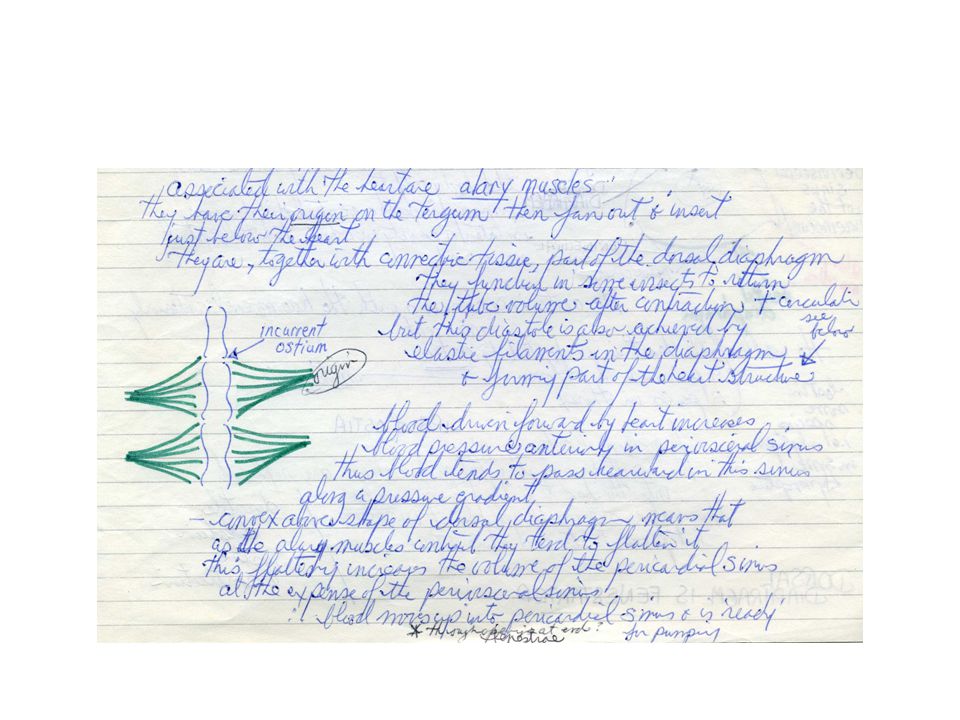 associated with the heart are alary muscles
they have their origin on the Tergum then fan out & insert
just below the heart
They are, together with connective tissue, part of the dorsal diaphragm
They function in some insects to return
the tube volume after contraction + circulati
see
below
but this diastole is also achieved by
elastic filaments in the diaphragm
& forming part of the heart structure
incurrent
ostium
origin
blood driven forward by heart increases
blood pressure anteriorly in perivisceral sinus
thus blood tends to pass rearward in this sinus
along a pressure gradient
- convex above shape of dorsal diaphragm means that
as the alary muscles contract they tend to flatten it
this flattening increases the volume of the pericardial sinus
at the expense of the perivisceral sinus
blood moves up into pericardial sinus & is ready
for pumping
* through opening at end?
fenestrae
DORSAL
DIAPHRAGM IS FEN